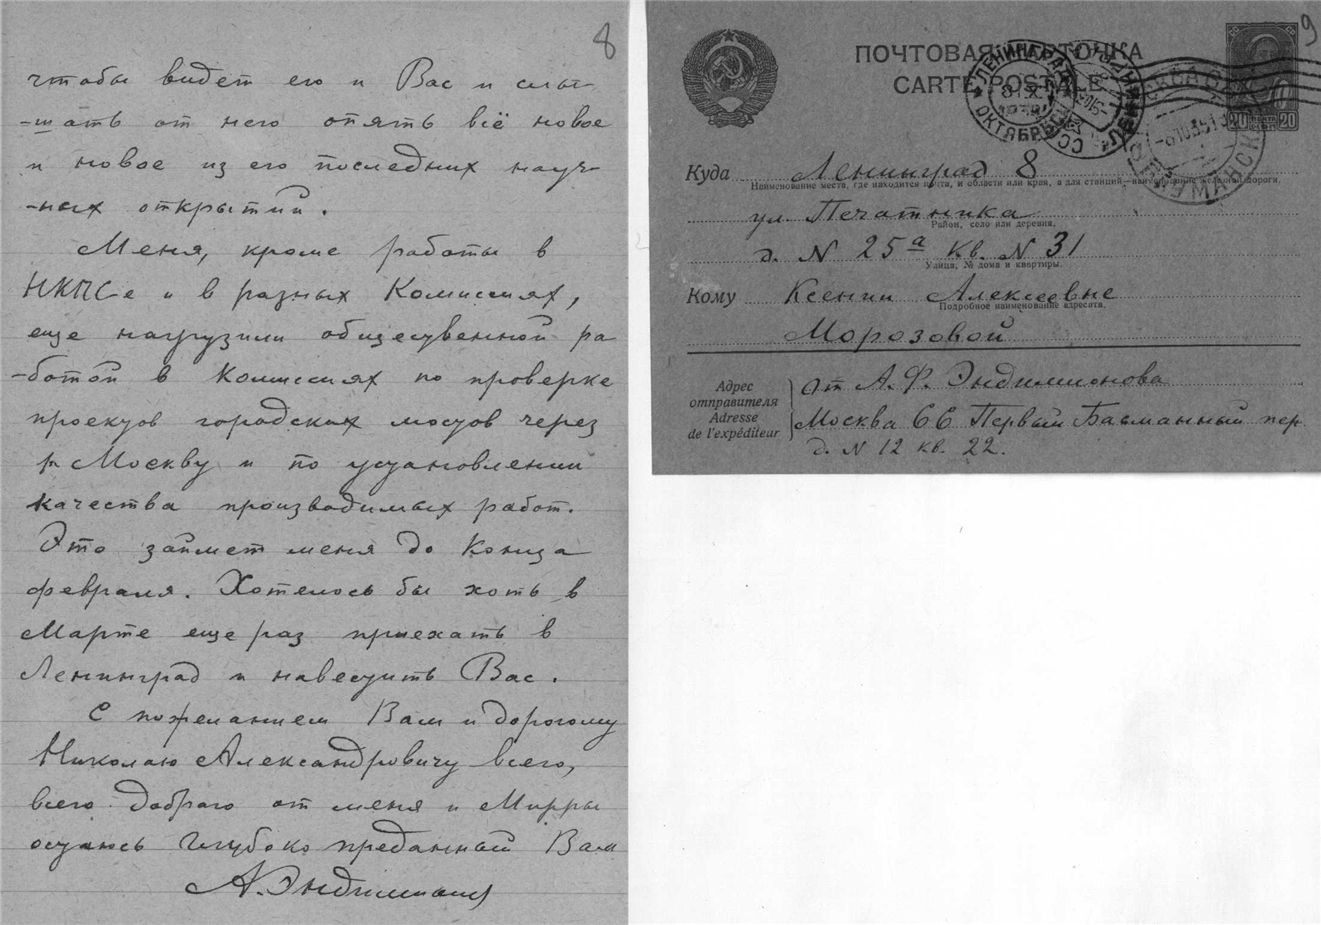 8
чтобы видет его и Вас и слы-
-шать от него опять всё новое
и новое из его последних науч-
-ных открытий.
Меня, кроме работы в
НКПС-е и в разных Комиссиях,
еще нагрузили общественной ра
-ботой в Комиссиях по проверке
проектов городских мостов через
р. Москву и по установлении
качества производимых работ.
Это займет меня до Конца
февраля. Хотелось бы хоть в
Марте еще раз приехать в
Ленинград и навестить Вас.
С пожеланием Вам и дорогому
Николаю Александровичу всего,
всего доброго от меня и Мирры
остаюсь глубоко преданный Вам
А. Эндимионов
9
ПОЧТОВАЯ КАРТОЧКА
CARTE POSTALE
ЛЕНИНГРАД
ОКТЯБРЬСК
20
20
-6.10.35
Куда Ленинград 8
Наименование места, где находится почта, и области или края, а для станций—наименование железной дороги.
ул. Печатника
Район, село или деревня.
д. N 25а кв. N 31
Улица, № дома и квартиры.
Кому Ксении Алексеевне
Подробное наименование адресата.
Морозовой
Адрес отправителя
Adresse de l'expéditeur
От А. Ф. Эндимионова
Москва 66 Первый Басманный пер.
д. N 12 кв. 22.